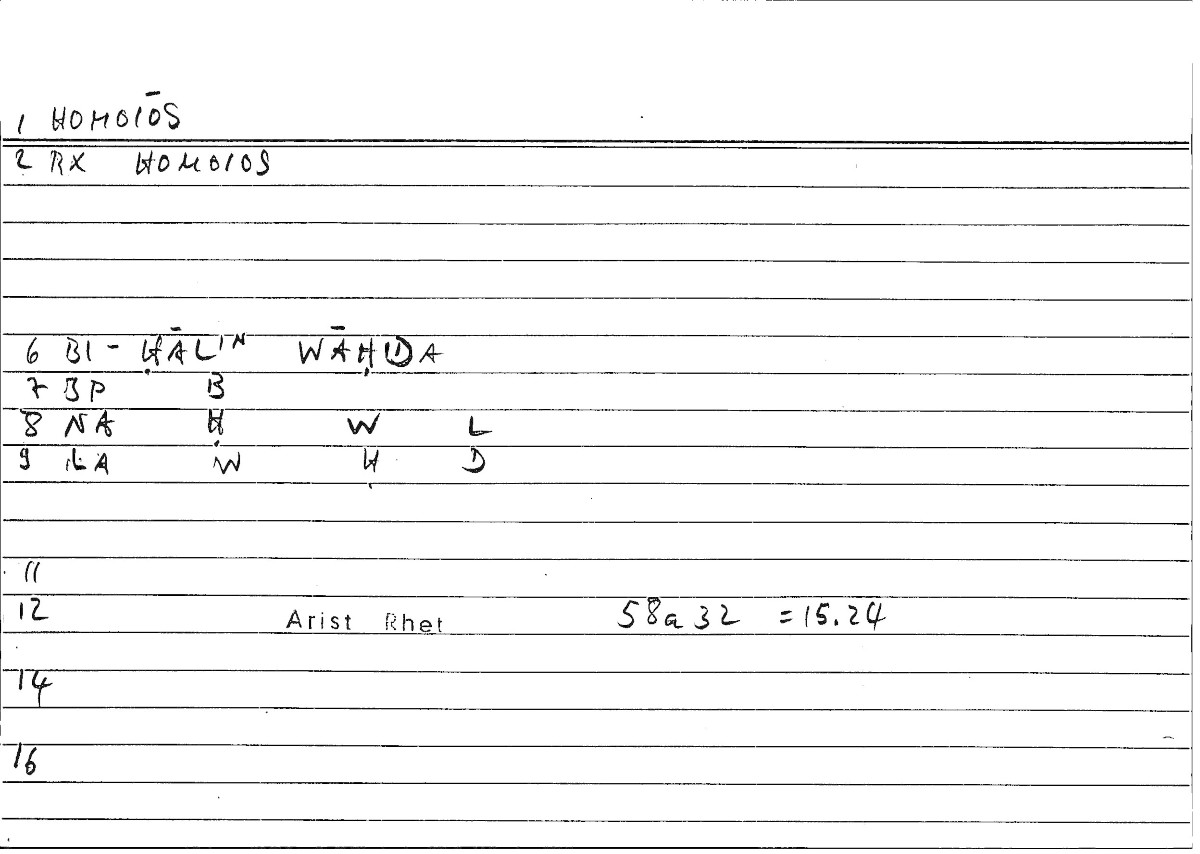 1 HOMOIŌS
2 RX HOMOIOS
6 BI- ḤĀLIN WĀḤIDA
7 BP B
8 NA Ḥ W L
9 LA W Ḥ D
11
12 Arist Rhet 58a32 =15.24
14
16